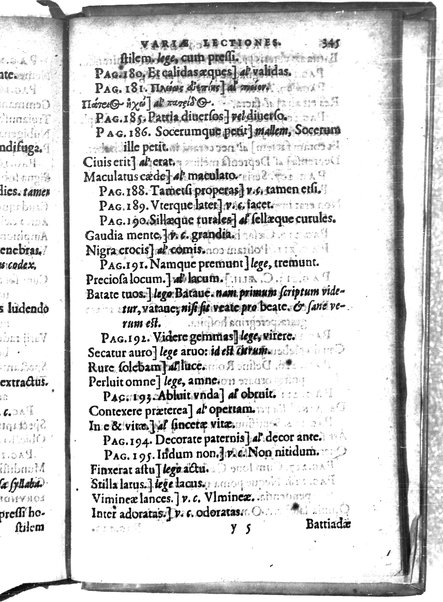 VARIÆ LECTIONES. 345
stilem. lege, cum pressi.
PAG.180, Et calidas æques] al validas.
PAG. 181.
PAG.185. Pattia diuersos] vel diuerso.
PAG. 186. Socerumque petit] mallem, Socerum
ille petit.
Ciuis erit] al erat.
Maculatus cæde] al maculato.
PAG.188. Tametsi properas] v.c. tamen etsi.
PAG.189. Vterque later] v.c. jacet.
PAG.190. Sillæque turales] al sellæque curules.
Gaudia mente.] v.c. grandia.
Nigra crocis] al comis.
PAG.191. Namque premunt] lege, tremunt.
Preciosa locum.] al lacum.
Batate tuos.] lego Batauæ. nam primum scriptum vide-
tur, vatauæ, nisi sit veate pro beate. & sane ve-
rum est.
PAG.192. Videre gemmas] lege, virere.
Secatur auro] lege aruo: id est currum.
Rure solebam] al luce.
Perluit omne] lege, amne.
PAG.193. Abluit vnda] al obruit.
Contexere præterea] al opertam.
In e & vitæ.] al sincetæ vitæ.
PAG.194. Decorate paternis] al decor ante.
PAG.195. Insdum non.] v.c. Non nitidum.
Finxerat astu] lego actu.
Stilla latus.] lege lacus.
Vimineæ lances.] v.c. Vlmineæ.
Inter adoratas.] v.c. odoratas.
y 5 Battiadæ
ate.
ndifuga.
dies. tamen
enebras.
us codex,
s ludendo
extractus.
c.
sæ syllaba.
pressi ho-
stilem